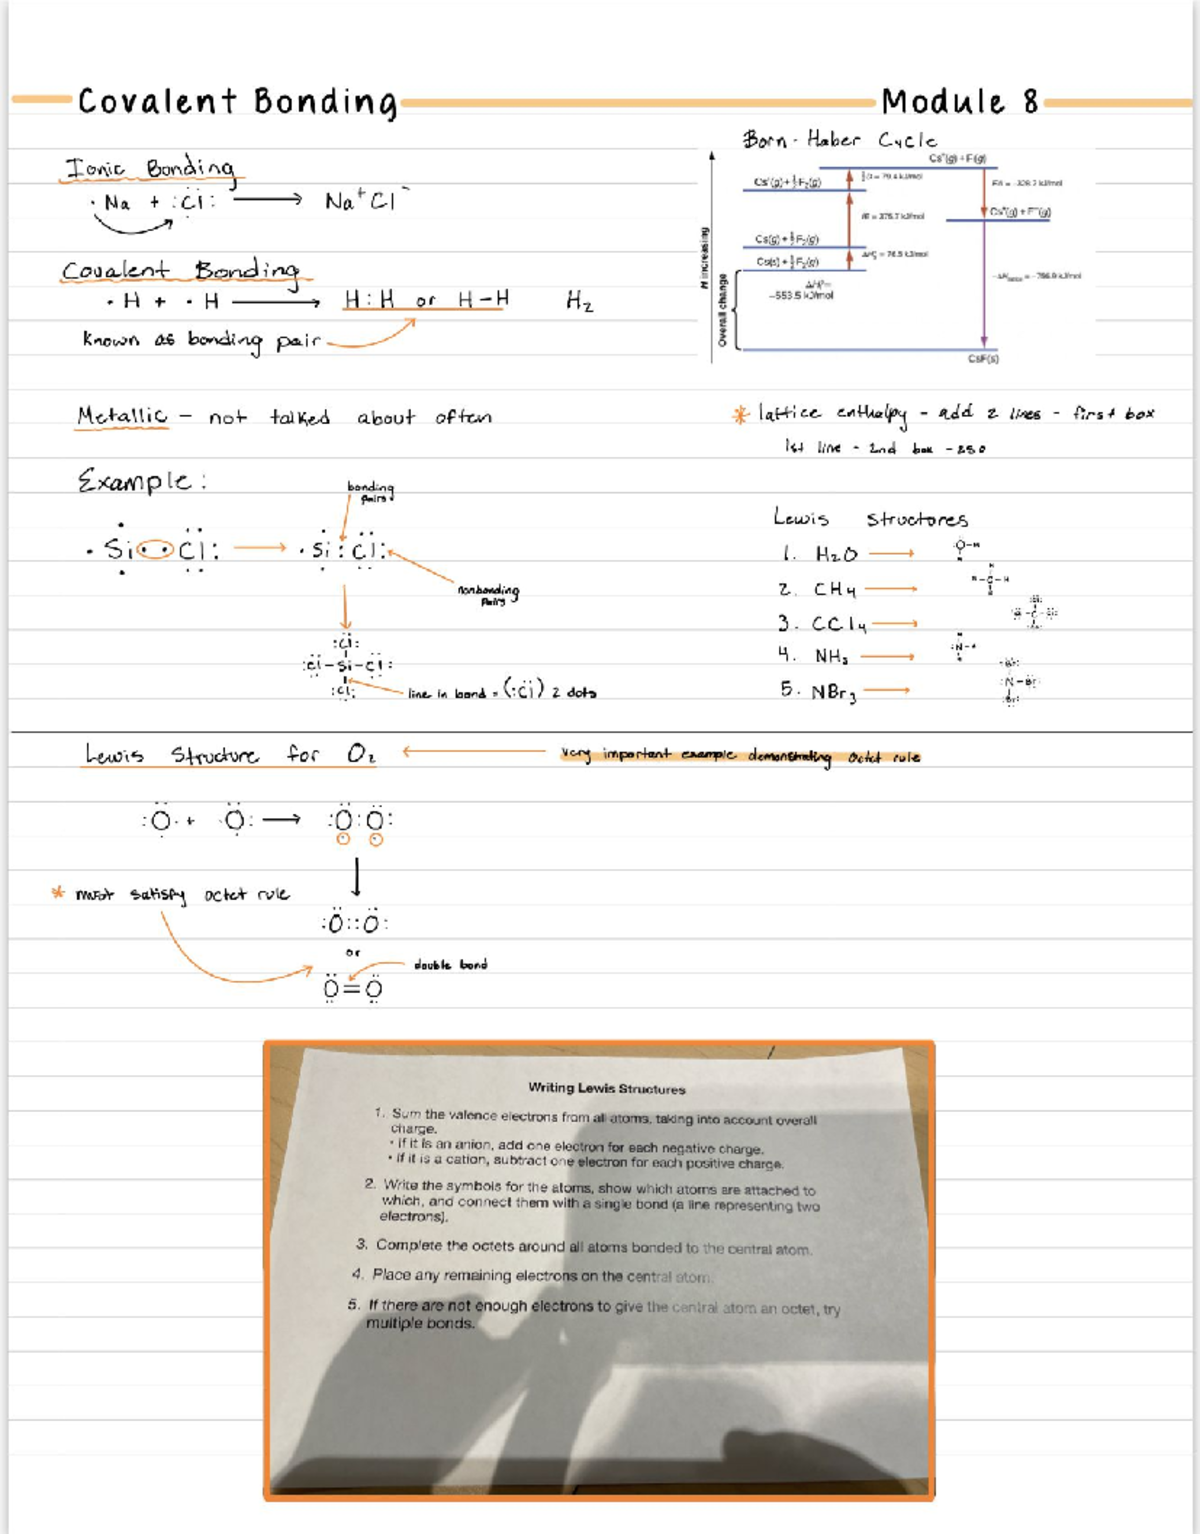 Covalent Bonding
Module 8
Ionic Bonding
· Na + :Cl: → Na⁺ Cl⁻
Covalent Bonding
· H + · H → H : H or H – H H₂
Known as bonding pair
Metallic – not talked about often
Example:
bonding
pairs
· Si · · Cl : → · Si : Cl :
nonbonding
pairs
:Cl:
:Cl – Si – Cl:
:Cl:
line in bond = (:Cl) 2 dots
Born - Haber Cycle
H increasing
Overall change
Cs⁺(g) + F(g)
Cs⁺(g) + ½F₂(g)
Cs⁺(g) + F⁻(g)
Cs(g) + ½F₂(g)
Cs(s) + ½F₂(g)
-553.5 kJ/mol
CsF(s)
* lattice enthalpy – add 2 lines – first box
1st line - 2nd box
Lewis Structures
1. H₂O →
2. CH₄ →
3. CCl₄ →
4. NH₃ →
5. NBr₃ →
Lewis Structure for O₂
very important example demonstrating octet rule
:O· + ·O: → :O:O:
* must satisfy octet rule
:O::O:
or
double bond
O=O
Writing Lewis Structures
1. Sum the valence electrons from all atoms, taking into account overall
charge.
• If it is an anion, add one electron for each negative charge.
• If it is a cation, subtract one electron for each positive charge.
2. Write the symbols for the atoms, show which atoms are attached to
which, and connect them with a single bond (a line representing two
electrons).
3. Complete the octets around all atoms bonded to the central atom.
4. Place any remaining electrons on the central atom.
5. If there are not enough electrons to give the central atom an octet, try
multiple bonds.